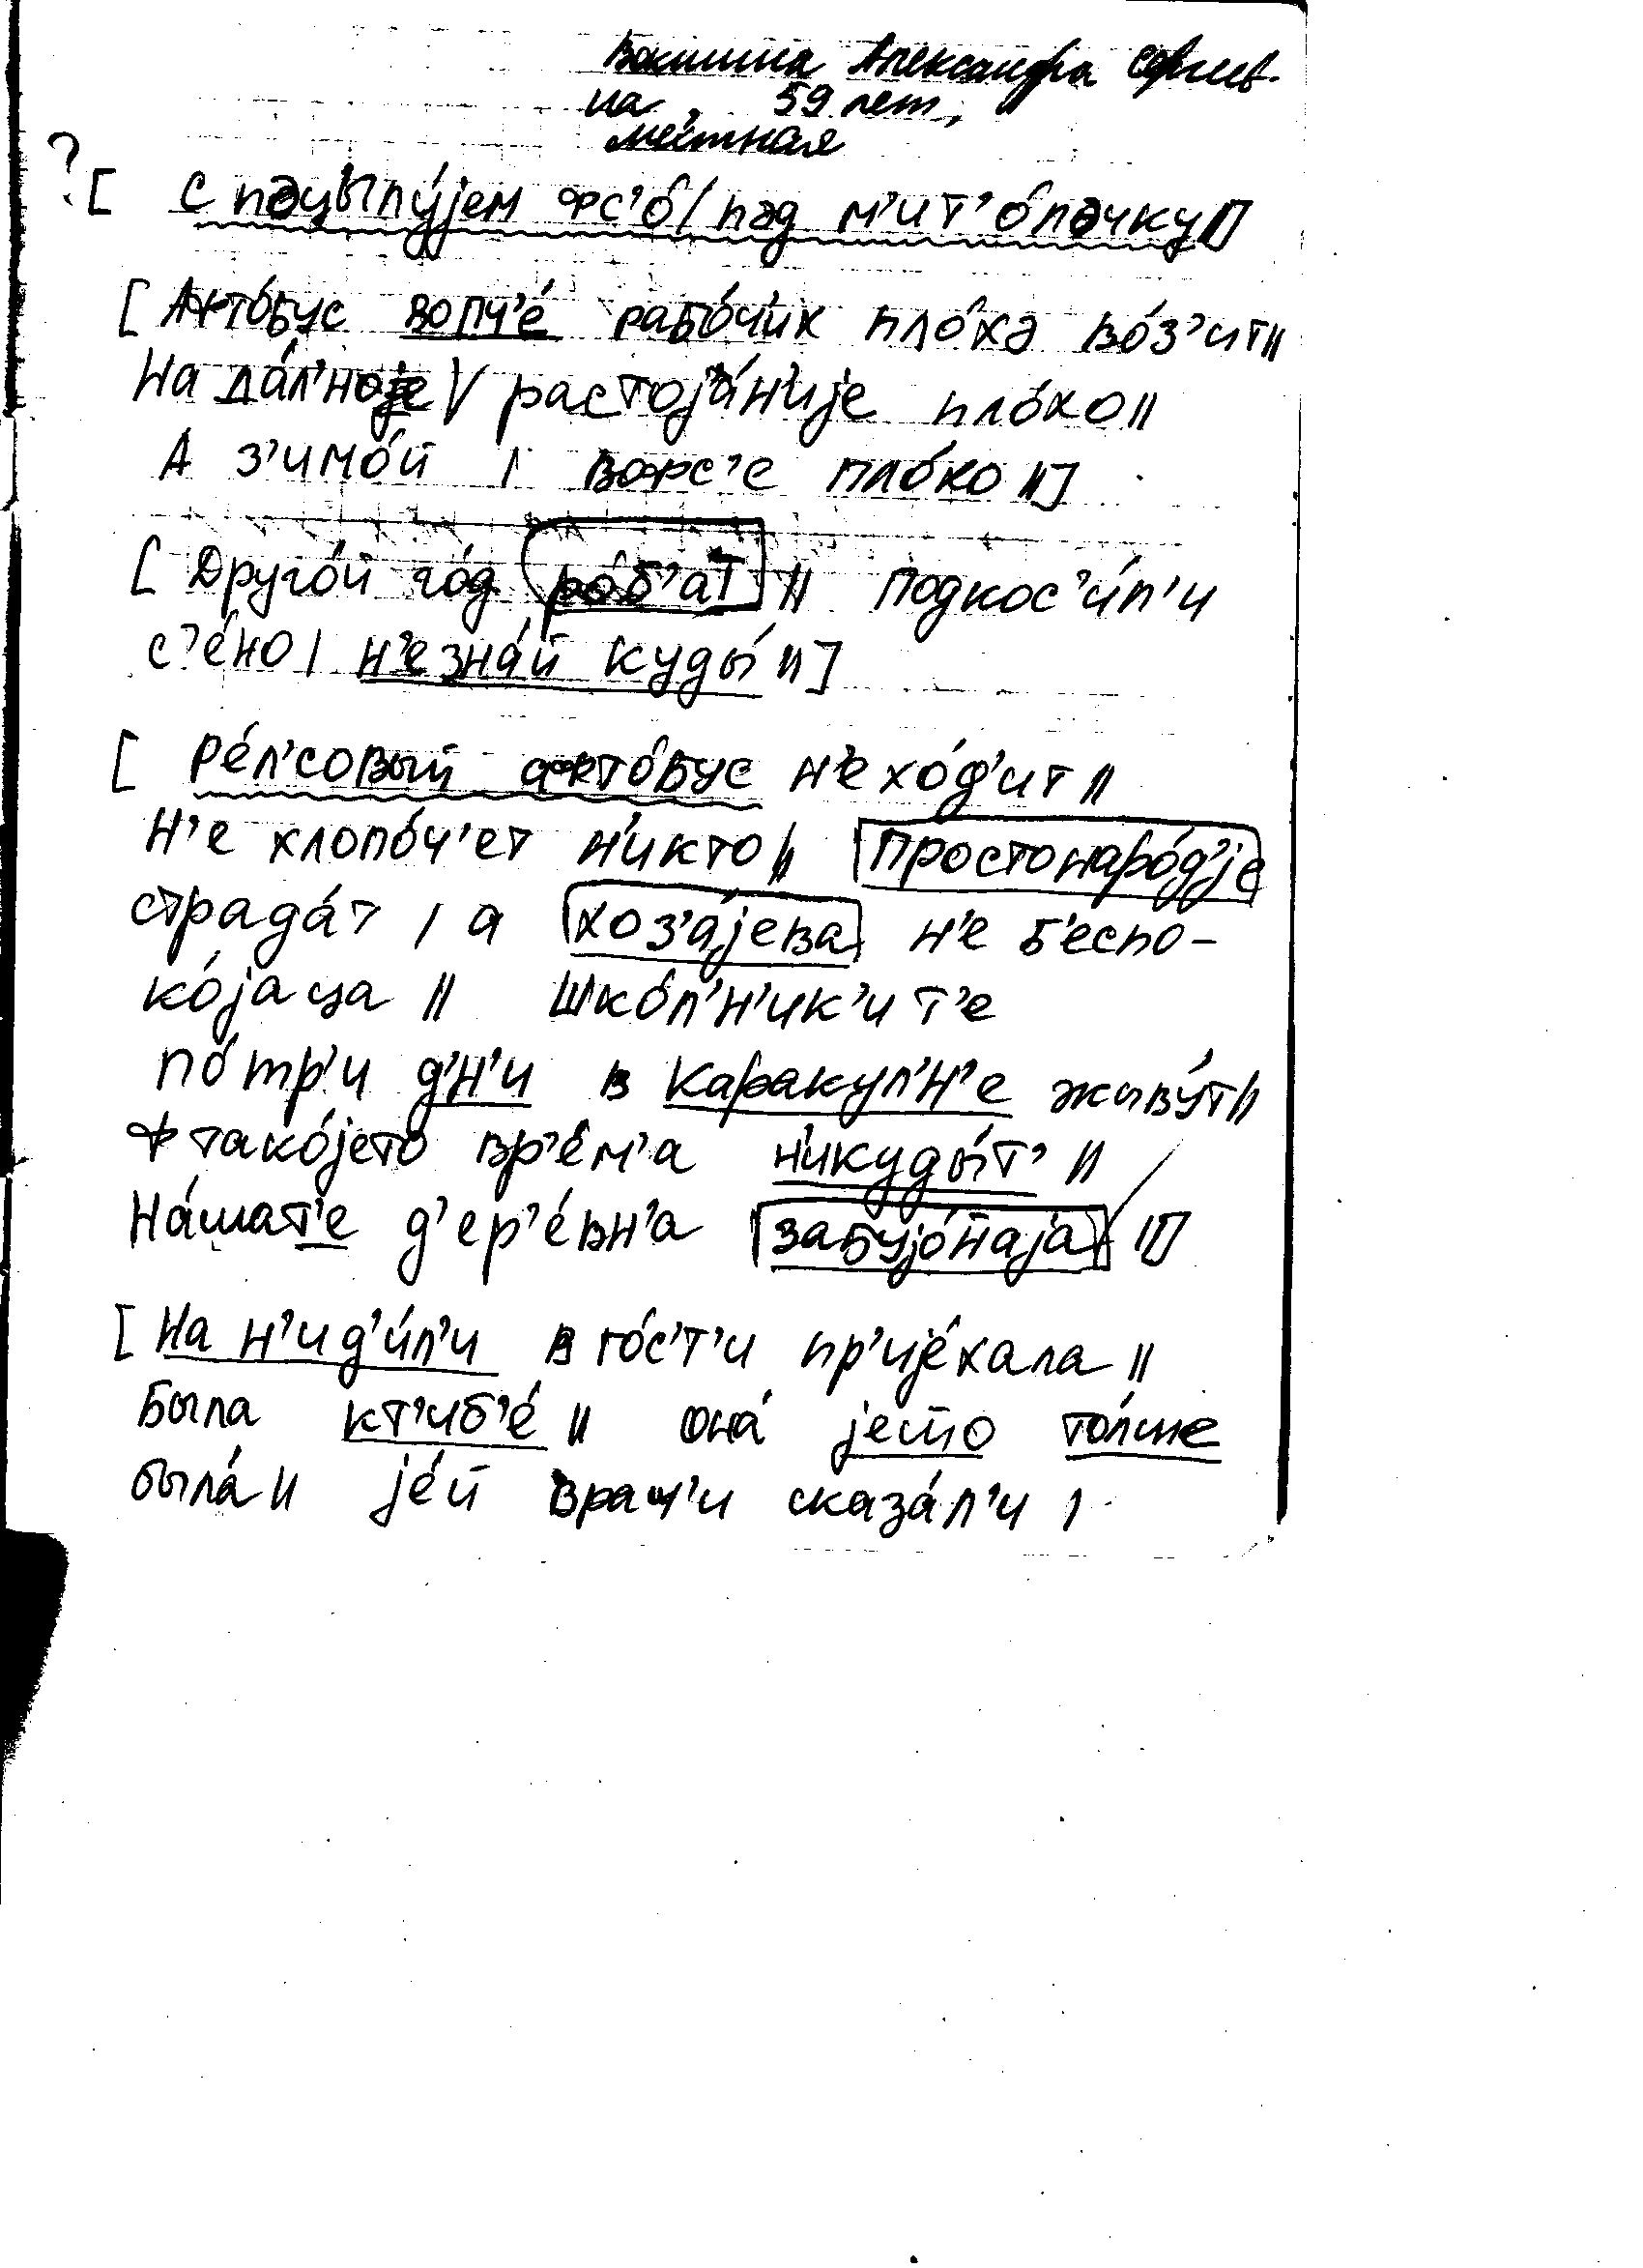 Вакшина Александра Сергеев-
на, 59 лет,
местная
?[ с пәцылу́јем фс’о́ / пәд м’ит’о́ләчку ||]
[ Афто́бус вопч’е́ рабо́ч’их пло́хә во́з’ит ||
На да́л’ноје \/ растоја́н’ије пло́хо ||
А з’имо́й / вофс’е пло́хо ||]
[ Друго́й го́д ро́б’ат || подкос’и́л’и
с’е́но / н’е зна́й куды́ ||]
[ Ре́л’совый афто́бус н’е хо́д’ит ||
Н’е хлопо́ч’ет н’икто || простонаро́д’је
страда́т / а хоз’а́јева н’е б’еспо-
ко́јаца || Шко́л’н’ик’и т’е
по́ тр’и д’н’и в Каракул’н’е живу́т ||
ф тако́јето вр’е́м’а н’икуды́т’ ||
На́шат’е д’ер’е́вн’а забујо́наја ||]
[ На н’ид’и́л’и в го́с’т’и пр’ије́хала ||
Была кт’иб’е́ || она́ јешо то́лше
была́ || је́й врач’и сказа́л’и /